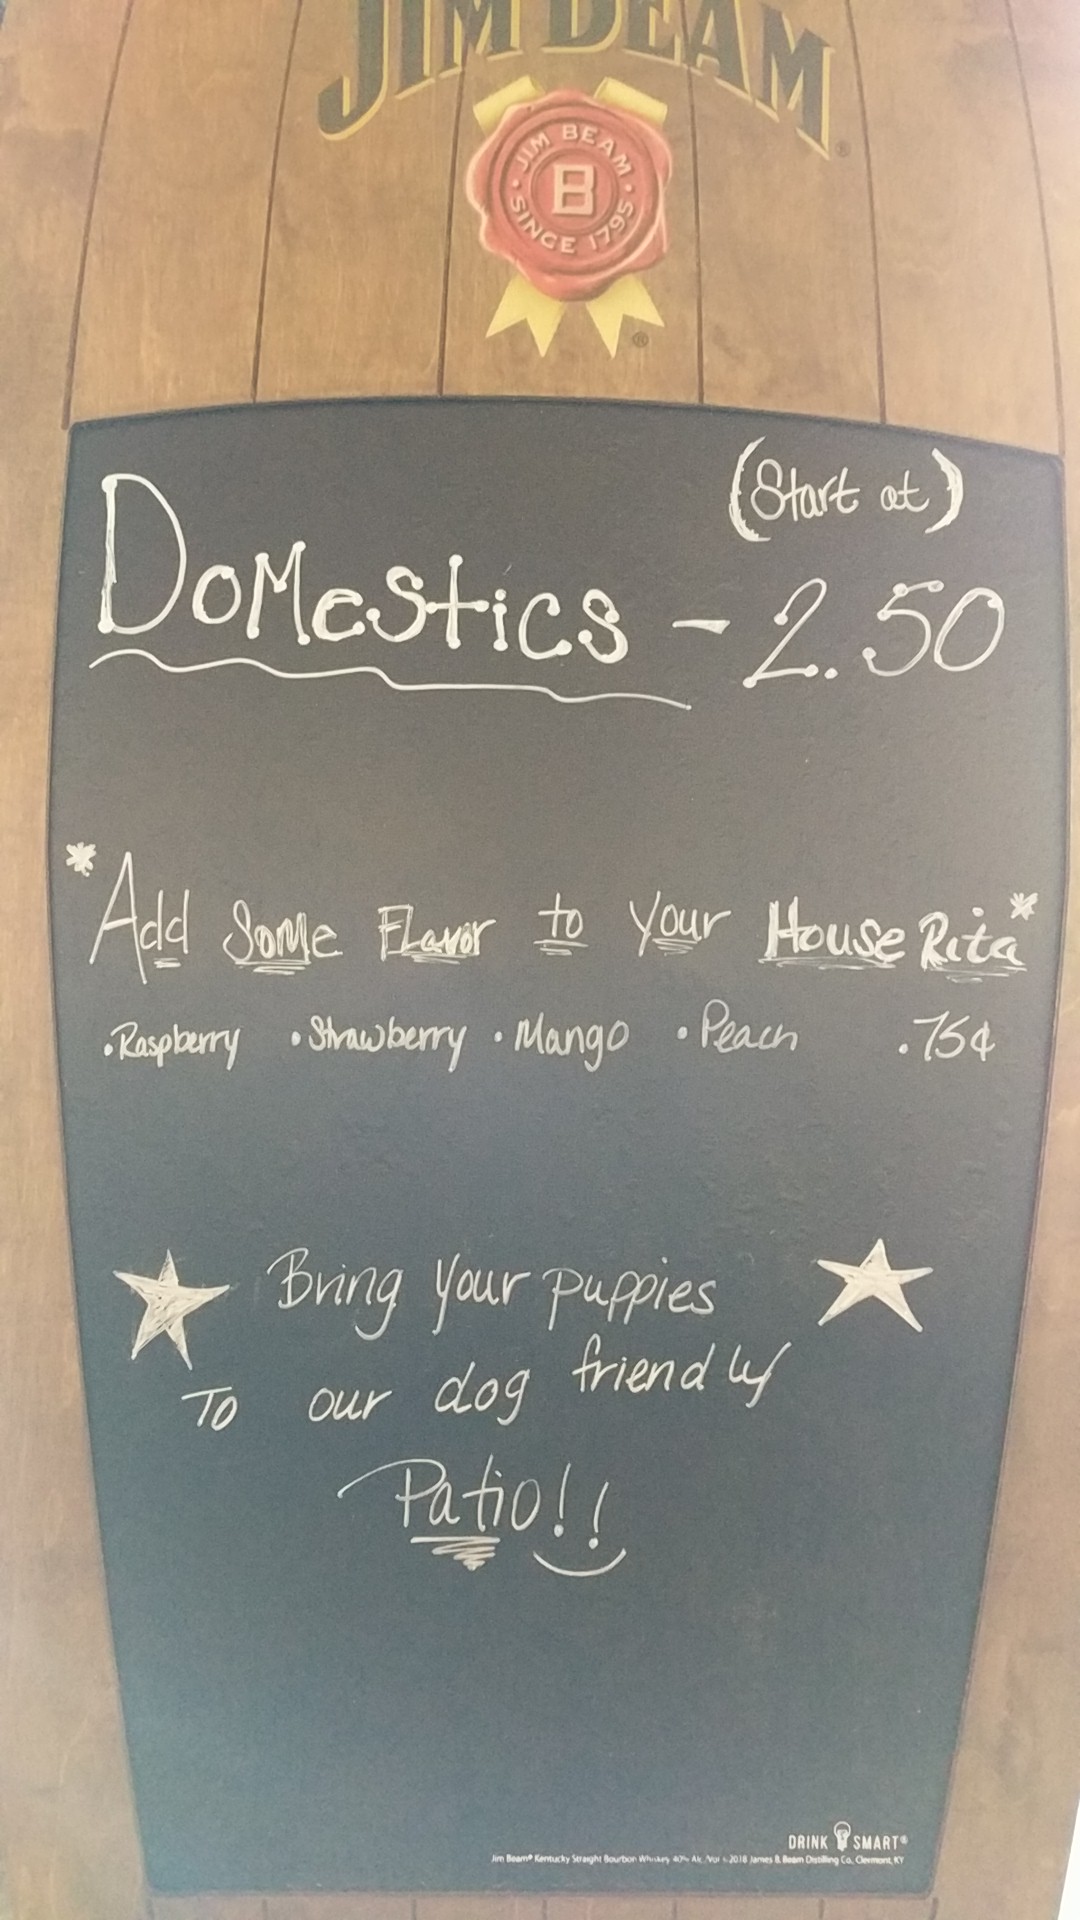 JIM BEAM®
JIM BEAM
B
SINCE 1795
®
(Start at)
DoMestics - 2.50
*Add Some Flavor to Your House Rita*
•Raspberry •Strawberry •Mango •Peach .75¢
Bring Your puppies
To our dog friendly
Patio!!
DRINK SMART®
Jim Beam® Kentucky Straight Bourbon Whiskey, 40% Alc./Vol. ©2018 James B. Beam Distilling Co., Clermont, KY